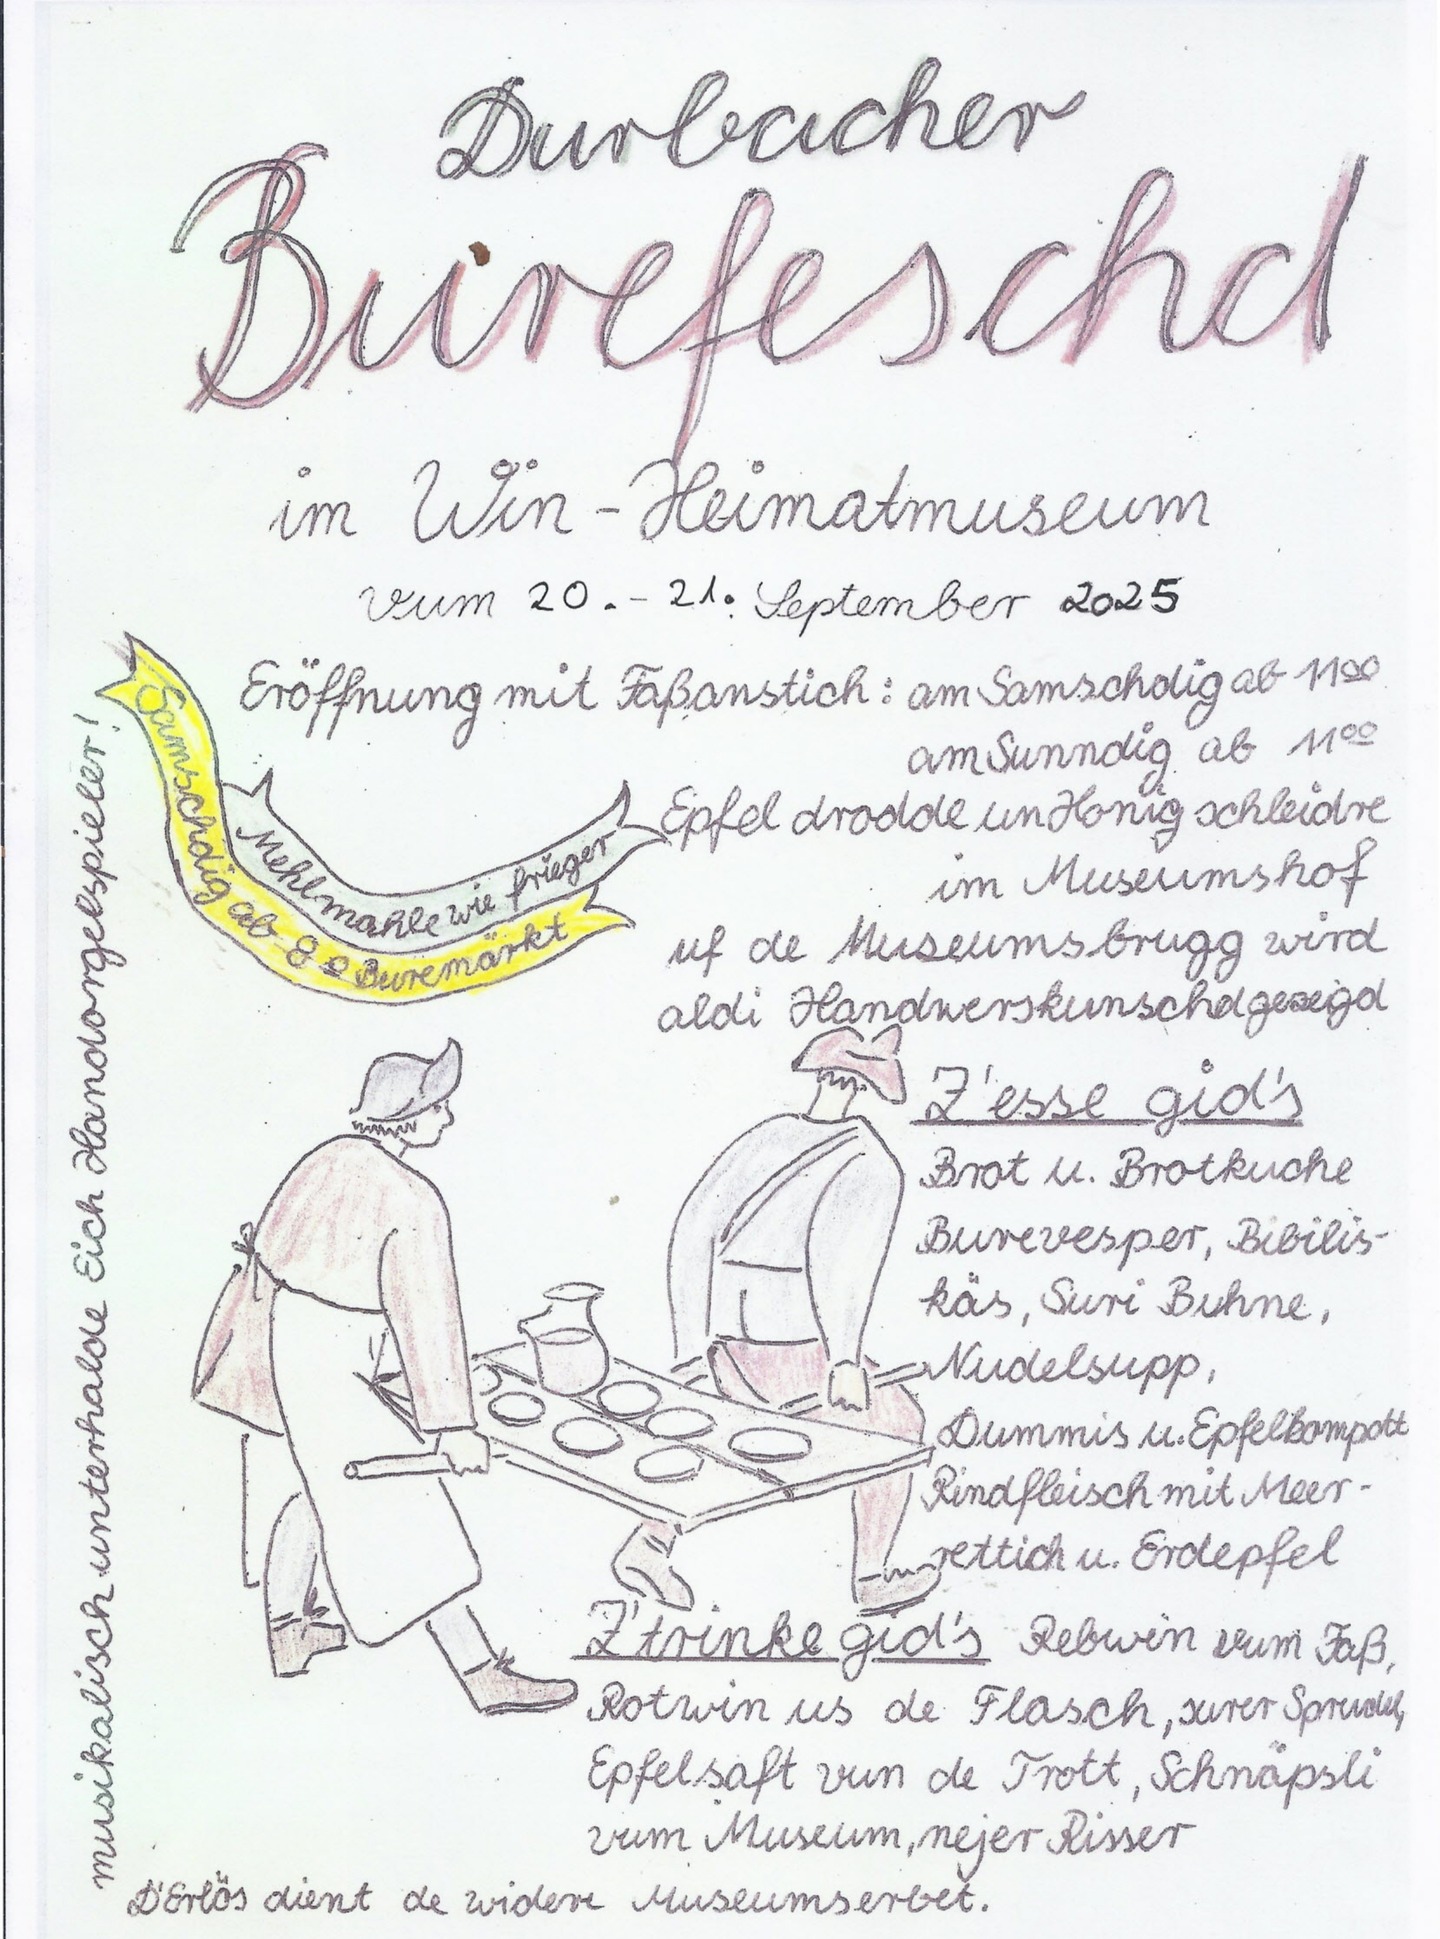 Durbacher
Burefeschd
im Win-Heimatmuseum
vum 20.-21. September 2025
Eröffnung mit Faßanstich: am Samschdig ab 11⁰⁰
am Sunndig ab 11⁰⁰
Samschdig ab 8⁰⁰ Buremärkt
Mehlmahle wie frieger
Epfel drodde un Honig schleidre
im Museumshof
uf de Museumsbrugg wird
aldi Handwerskunschd gezeigd
musikalisch unterhalde Eich Handorgelspieler!
Z'esse gid's
Brot u. Brotkuche
Burevesper, Bibilis-
käs, Suri Buhne,
Nudelsupp,
Dummis u. Epfelkompott
Rindfleisch mit Meer-
rettich u. Erdepfel
Z'trinke gid's Rebwin vum Faß,
Rotwin us de Flasch, surer Sprudel,
Epfelsaft vun de Trott, Schnäpsli
vum Museum, nejer Risser
D'Erlös dient de widere Museumserbet.